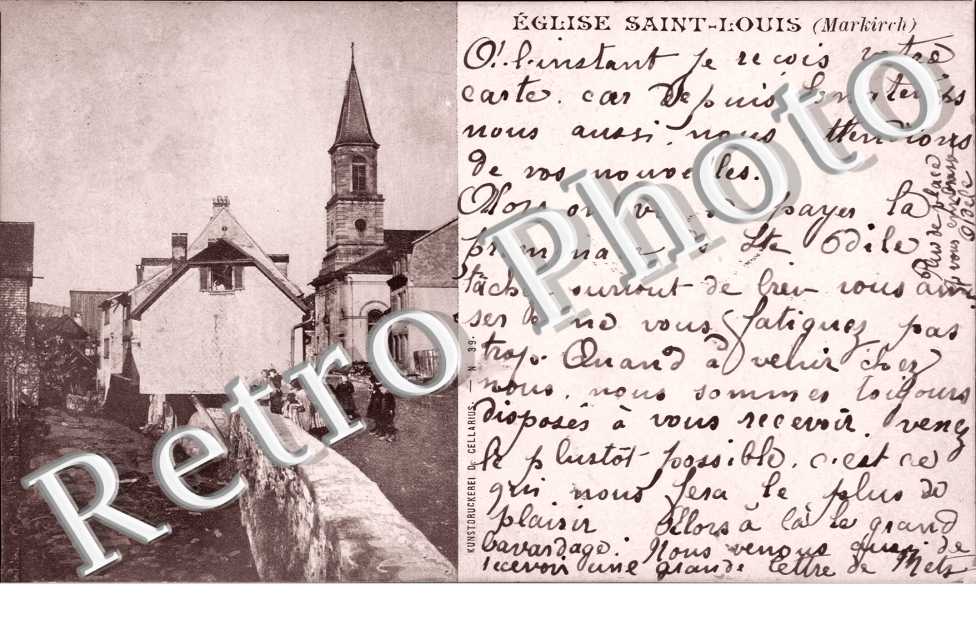 ÉGLISE SAINT-LOUIS (Markirch)
A l'instant je reçois votre
carte. car depuis longtemps
nous aussi, nous attendions
de vos nouvelles.
Alors on va se payer la
promenade de Ste Odile
tâchez surtout de bien vous amu
ser & ne vous fatiguez pas
trop. Quand à venir chez
nous, nous sommes toujours
disposés à vous recevoir. venez
le plustôt possible. c'est ce
qui nous fera le plus de
plaisir Alors à là le grand
bavardage. Nous venons aussi de
recevoir une grande lettre de Metz
Plus de place
et vous embrasse
Odile
KUNSTDRUCKEREI Dr. CELLARIUS. — N 39.
Retro Photo